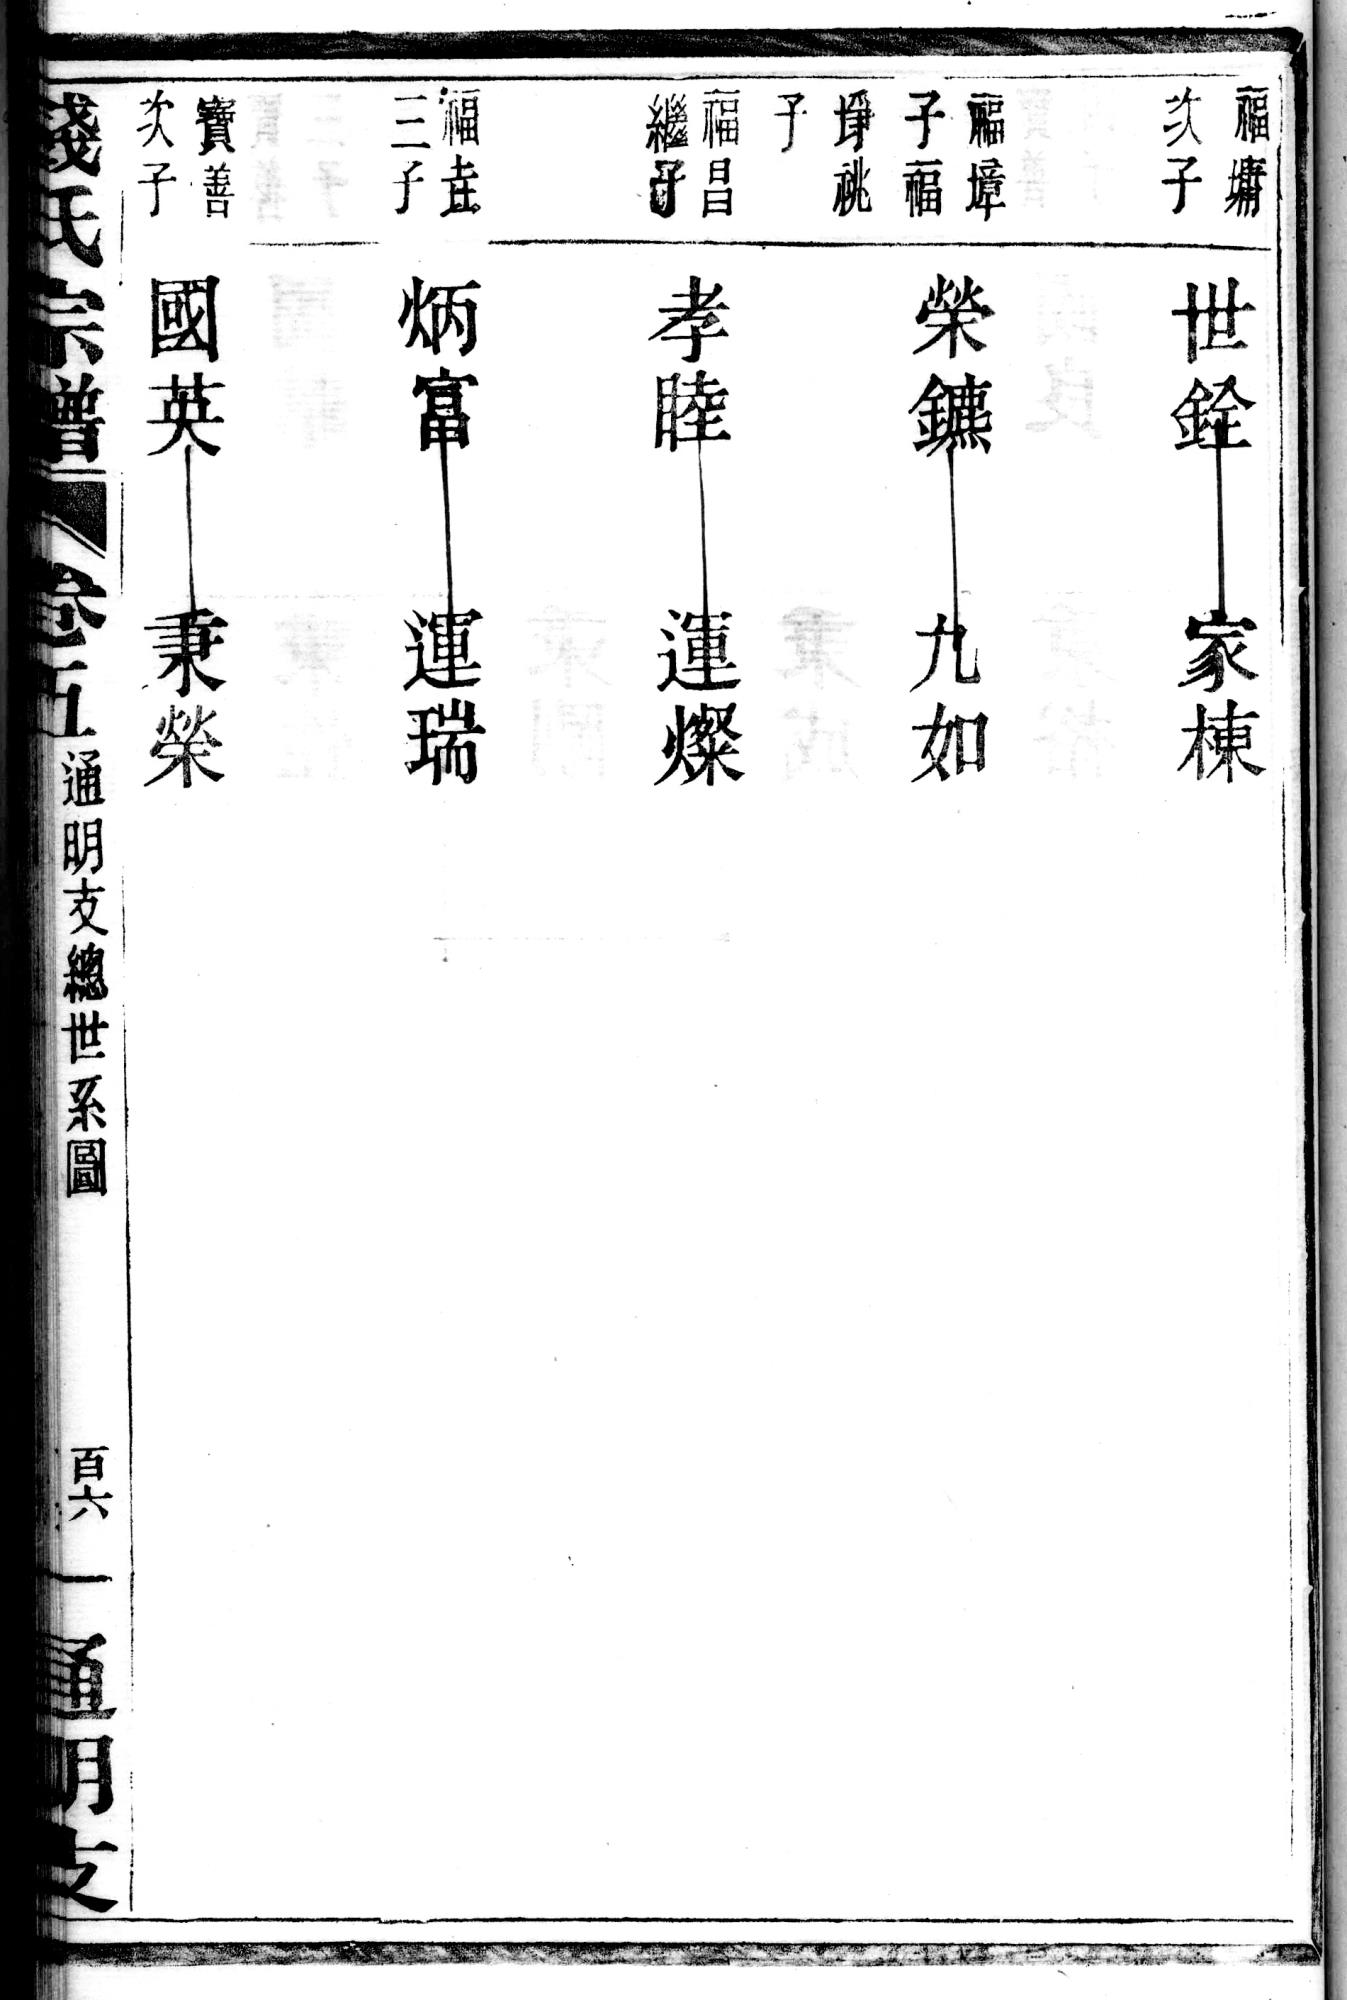 福墉
次子
世銓
家棟
福墇
子福
埩祧
子
榮鑣
九如
福昌
繼子
孝睦
運燦
福垚
三子
炳富
運瑞
寶善
次子
國英
秉榮
錢氏宗譜
卷五
通明支總世系圖
百六
通明支